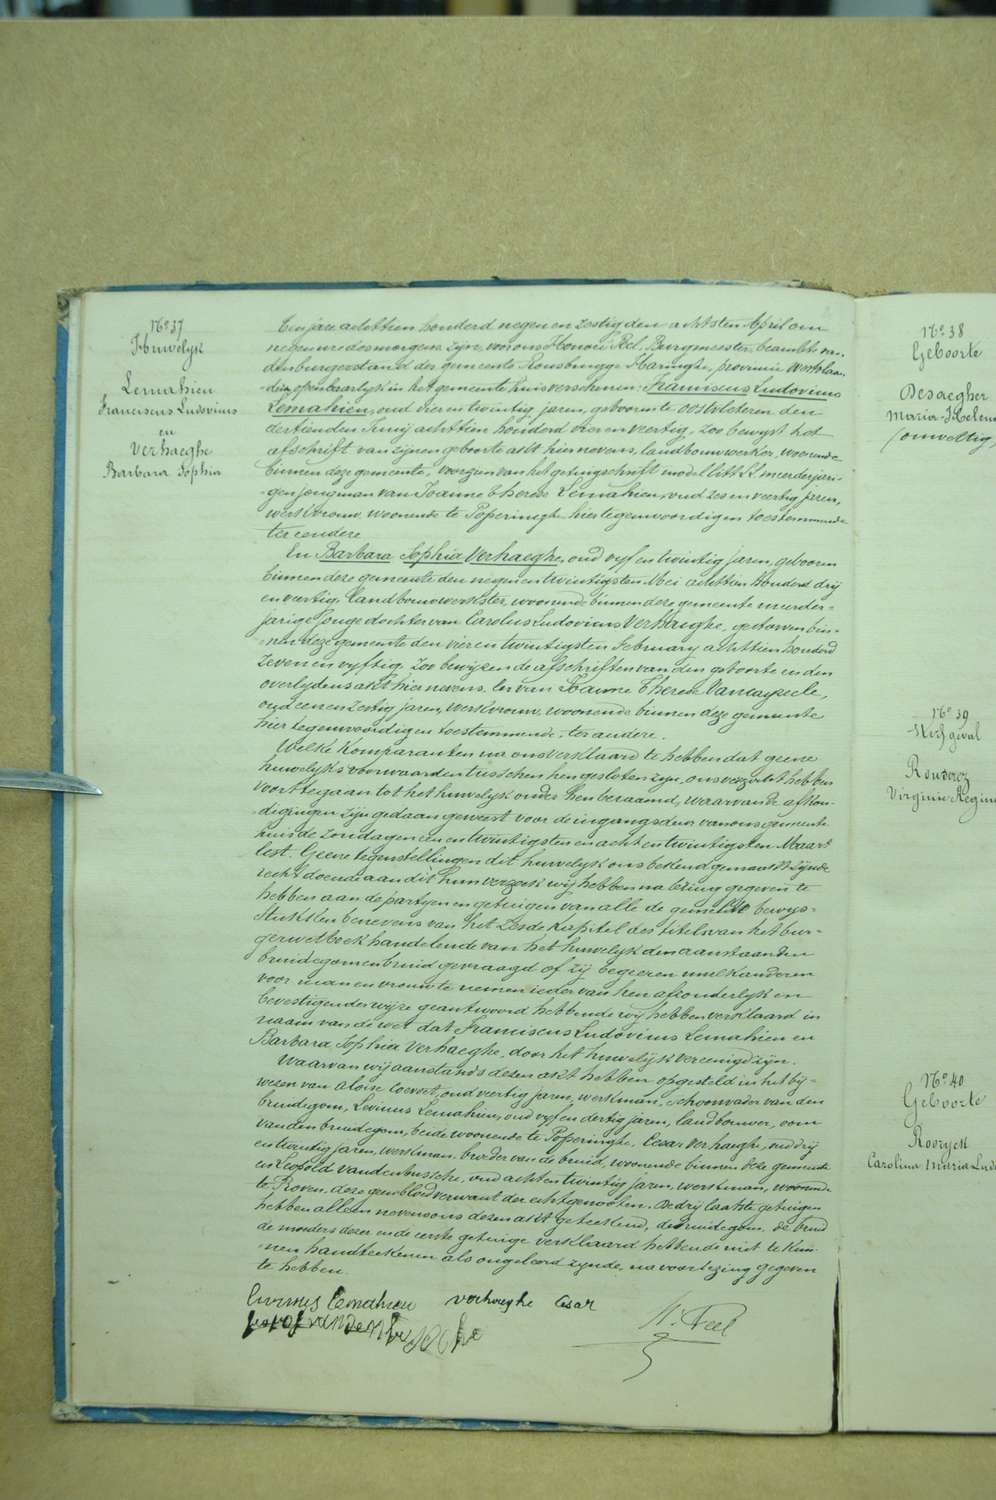 No 37
Huwelyk
Lemahieu
Franciscus Ludovicus
en
Verhaeghe
Barbara Sophia
Een jare achttien honderd negen en zestig den achtsten April om
negen ure des morgens zijn, voor ons Honoré Feel, Burgmeester, beambte van
den burgerstand der gemeente Rousbrugge Haringhe, provincie Westvlaan-
-deren openbaarlyk in het gemeente huis verschenen: Franciscus Ludovicus
Lemahieu, oud vier en twintig jaren, geboren te Oostvleteren den
dertienden Junij achttien honderd vier en veertig, zoo bewyst het
afschrift van zijnen geboorte akt hier nevens, landbouwwerker, woonende
binnen deze gemeente, voorzien van het getuigschrift model litt. meerderjari-
-gen jongman van Joanne Therese Lemahieu, oud zes en veertig jaren,
werkvrouw, woonende te Poperinghe hier tegenwoordig en toestemmende
ter eendere
En Barbara Sophia Verhaeghe, oud vyf en twintig jaren, geboren
binnen deze gemeente den negen en twintigsten Mei achttien honderd drij
en veertig, landbouwwerkster, woonende binnen deze gemeente meerder-
-jarige jonge dochter van Carolus Ludovicus Verhaeghe, gestorven bin-
-nen deze gemeente den vier en twintigsten february achttien honderd
zeven en vyftig, zoo bewijzen de afschriften van den geboorte en den
overlydens akt hier nevens. en van Joanne Therese Vancayseele,
oud een en zestig jaren, werkvrouw, woonende binnen deze gemeente
hier tegenwoordig en toestemmende, ter andere.
Welke komparanten na ons verklaard te hebben dat geene
huwelyks voorwaarden tusschen hen gesloten zyn, ons verzocht hebben
voort te gaan tot het huwelyk onder hen beraamd, waarvan de afkon-
-digingen zijn gedaan geweest voor de ingangsdeur van ons gemeente
huis de zondagen een en twintigsten en acht en twintigsten Maart
lest. Geene tegenstellingen dit huwelyk ons bekend gemaakt zijnde
recht doende aan dit hun verzoek wy hebben na lezing gegeven te
hebben aan de partyen en getuigen van alle de gemelde bewys-
stukken benevens van het zesde kapitel des titels van het bur-
gerwetboek handelende van het huwelyk den aanstaanden
bruidegom en bruid gevraagd of zy begeeren malkanderen
voor man en vrouw te nemen ieder van hen afzonderlyk en
bevestigender wijze geantwoord hebbende wy hebben verklaard in
naam van de wet dat Franciscus Ludovicus Lemahieu en
Barbara Sophia Verhaeghe, door het huwelyk vereenigd zyn.
Waarvan wy aanstonds dezen akt hebben opgesteld in het by-
wezen van Aloise Coevoet, oud veertig jaren, werkman, schoonvader van den
bruidegom, Livinus Lemahieu, oud vyf en dertig jaren, landbouwer, oom
van den bruidegom, beide woonende te Poperinghe, Cesar Verhaeghe, oud drij
en twintig jaren, werkman, broeder van de bruid, woonende binnen deze gemeente
en Leopold Vandenbussche, oud acht en twintig jaren, werkman, woonende
te Roven, deze geen bloedverwant der echtgenooten. De drij laatste getuigen
hebben alleen nevens ons dezen akt geteekend, de bruidegom, de bruid
de moeders dezer en de eerste getuige verklaard hebbende niet te kun-
-nen handteekenen als ongeleerd zynde, na voorlezing gegeven
te hebben.
Livinus Lemahieu verhaeghe Cesar
H. Feel
No 38
Geboorte
Desaegher
Maria-Helena
(onwettig)
No 39
Sterfgeval
Rouseroz
Virginie Regina
No 40
Geboorte
Rooryck
Carolina Maria Lud